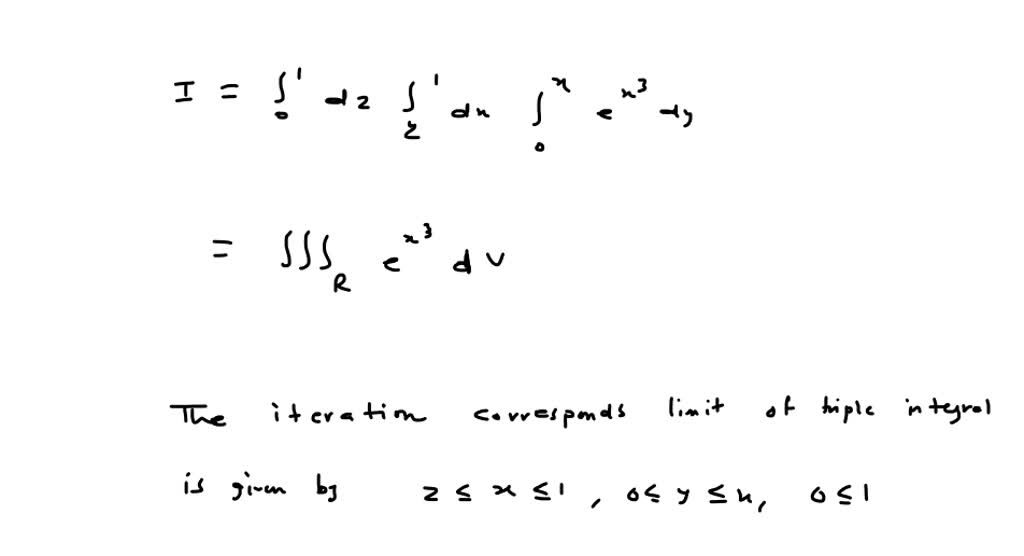 I = ∫₀¹ dz ∫_z¹ dx ∫₀ˣ e^{x³} dy
= ∫∫∫_R e^{x³} dV
The iteration corresponds limit of triple integral
is given by z ≤ x ≤ 1, 0 ≤ y ≤ x, 0 ≤ 1